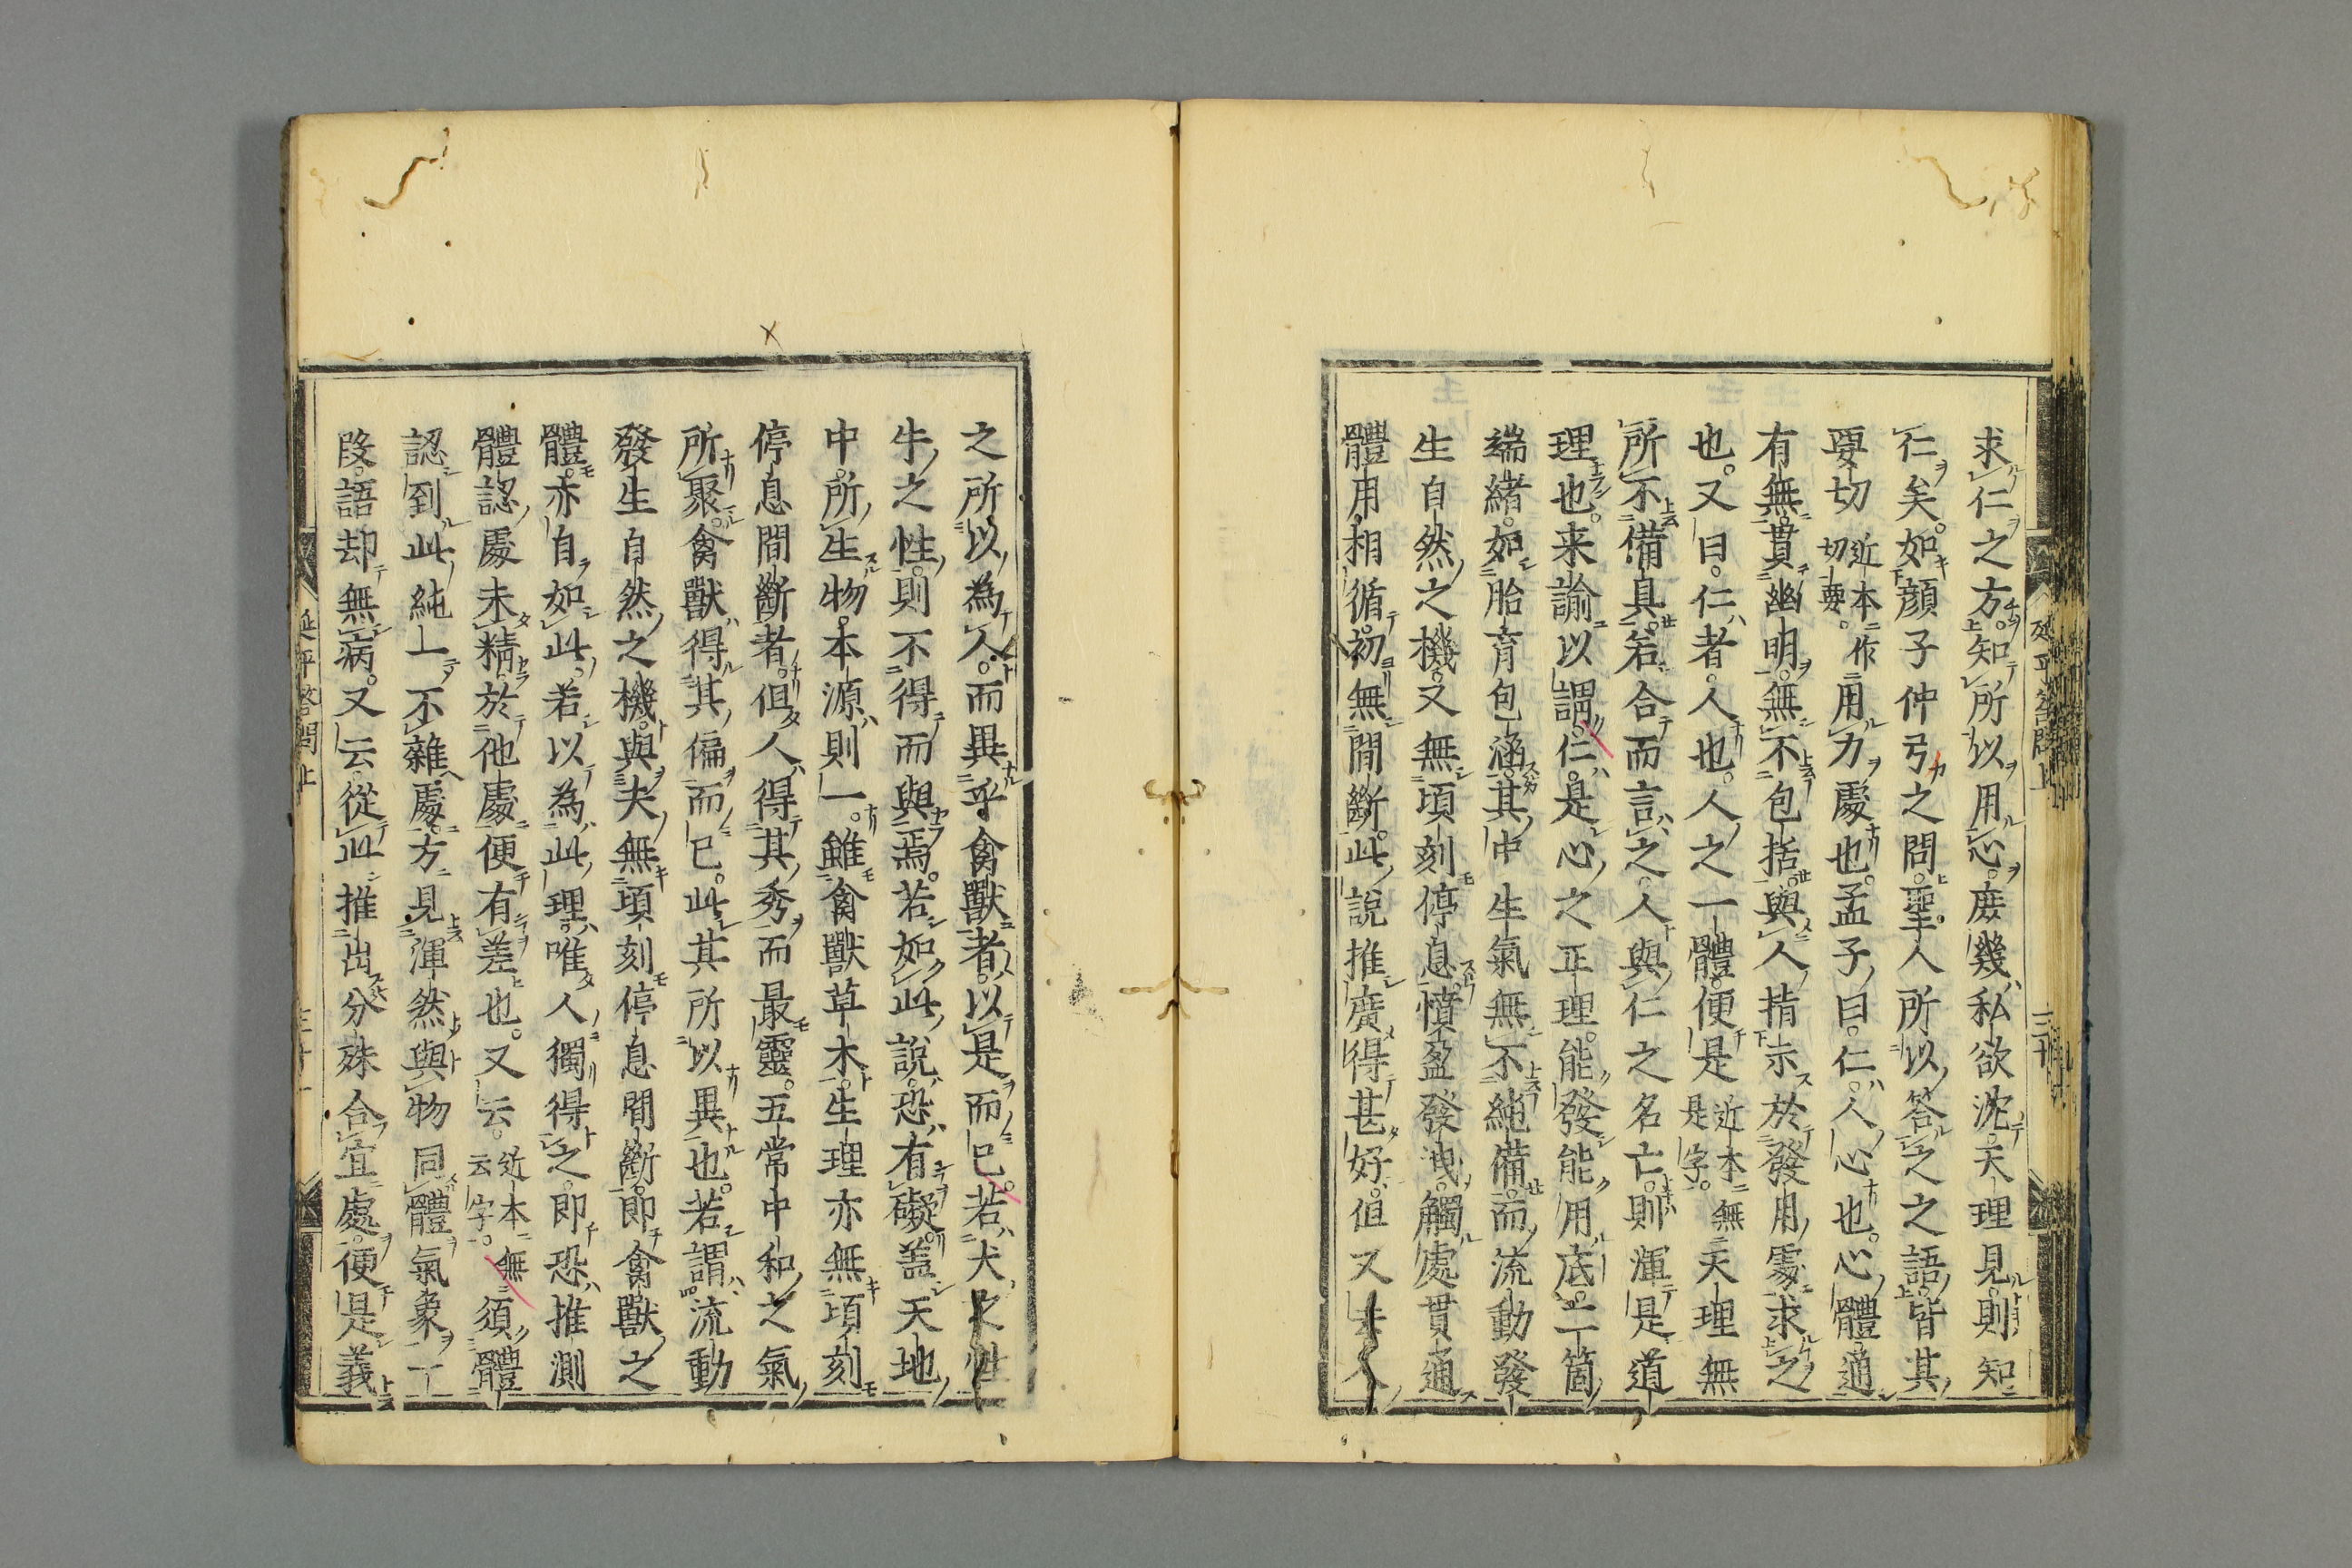 求仁之方。知所以用心。庶幾私欲沈。天理見。則知
仁矣。如顔子仲弓之問。聖人所以答之之語。皆其
要切近本作切要。用力處也。孟子曰。仁。人心也。心體通
有無。貫幽明。無不包括。與人指示於發用處求之
也。又曰。仁者。人也。人之一體。便是近本無是字。天理無
所不備具。若合而言之。人與仁之名亡。則渾是道
理也。来諭以謂。仁。是心之正理。能發能用底一箇
端緒。如胎育包涵。其中生氣無不純備。而流動發
生自然之機。又無頃刻停息。憤盈發洩。觸處貫通
體用相循。初無間斷。此說推廣得甚好。但又云人
之所以為人。而異乎禽獸者。以是而已。若犬之性
牛之性。則不得而與焉。若如此說。恐有礙。盖天地
中。所生物。本源則一。雖禽獸草木。生理亦無頃刻
停息間斷者。但人得其秀而最靈。五常中和之氣
所聚。禽獸得其偏而已。此其所以異也。若謂流動
發生自然之機。與夫無頃刻停息間斷。即禽獸之
體。亦自如此。若以為此理。唯人獨得之。即恐推測
體認處未精。於他處便有差也。又云。近本無云字。須體
認到此純一不雜處。方見渾然與物同體氣象一
段。語却無病。又云。從此推出分殊合宜處。便是義
延平答問上
延平答問上